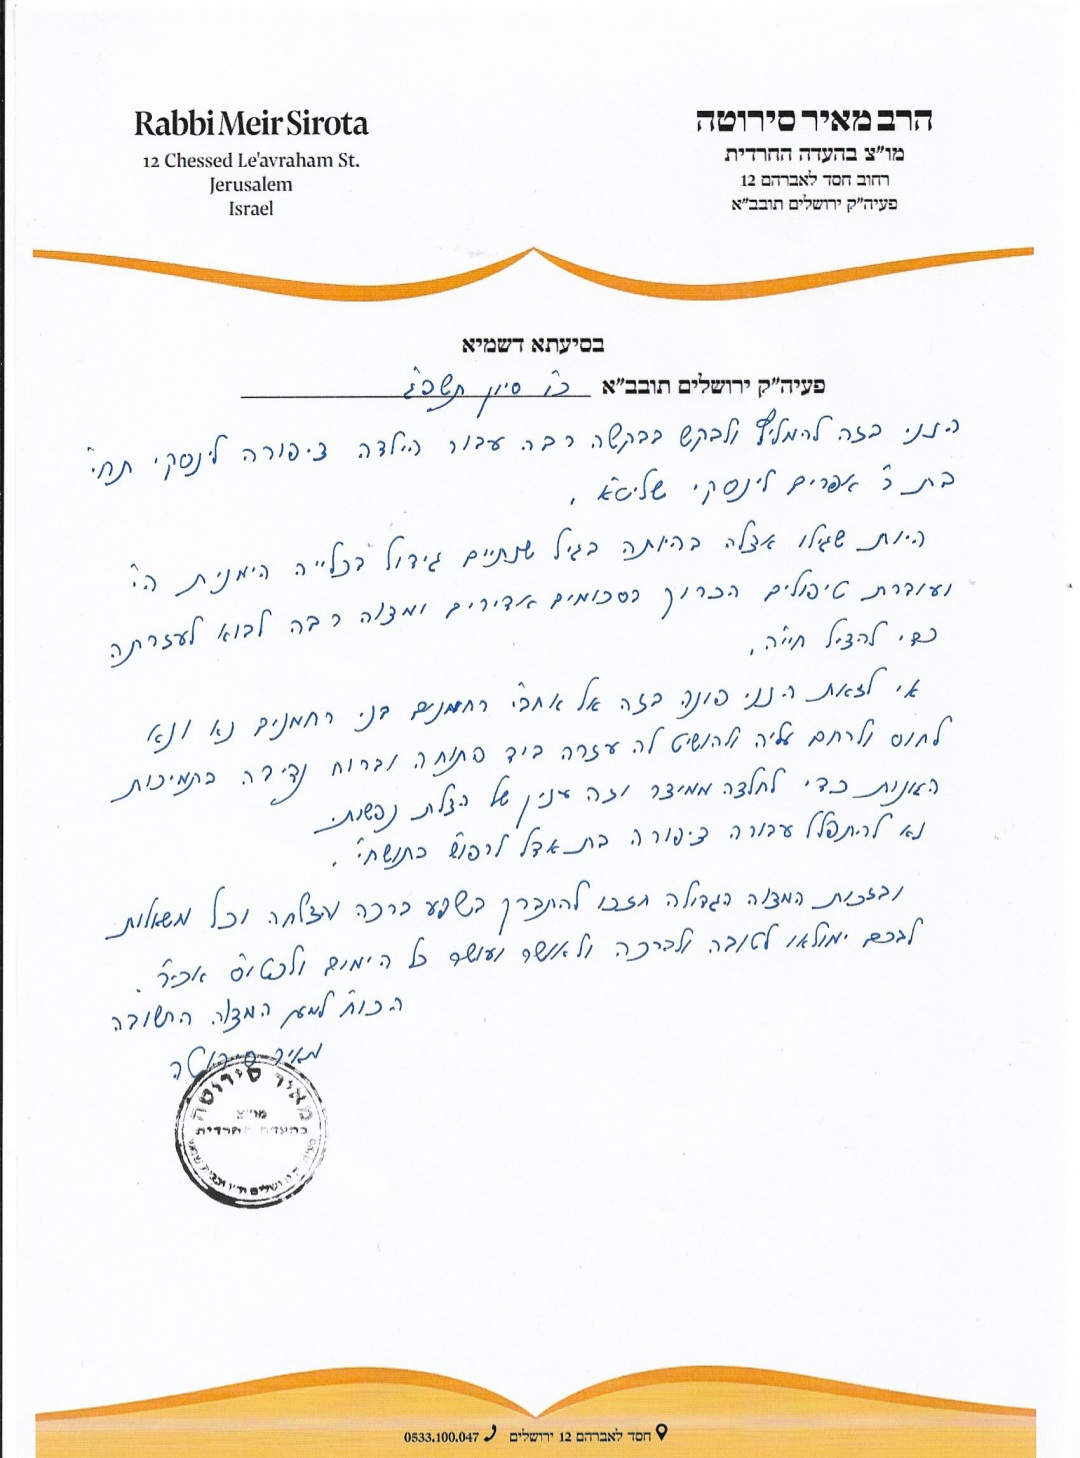 Rabbi Meir Sirota
12 Chessed Le'avraham St.
Jerusalem
Israel
הרב מאיר סירוטה
מו"צ בהעדה החרדית
רחוב חסד לאברהם 12
פעיה"ק ירושלים תובב"א
בסיעתא דשמיא
פעיה"ק ירושלים תובב"א כ"ו סיון תשפ"ג
הנני בזה להמליץ ולבקש בבקשה רבה עבור הילדה ציפורה לינסקי תחי'
בת ר' אפרים לינסקי שליט"א.
היות שגילו אצלה בהיותה בגיל שנתיים גידול בכלייה הימנית ה"י
ועוברת טיפולים הכרוך בסכומים אדירים ומצוה רבה לבוא לעזרתה
כדי להציל חייה.
אי לזאת הנני פונה בזה אל אחב"י רחמנים בני רחמנים נא ונא
לחוס ולרחם עליה ולהושיט לה עזרה ביד פתוחה וברוח נדיבה בתמיכות
הגונות כדי לחלצה ממיצר וזה ענין של הצלת נפשות.
נא להתפלל עבורה ציפורה בת אדל לרפו"ש בתושחי".
ובזכות המצוה הגדולה תזכו להתברך בשפע ברכה והצלחה וכל משאלות
לבכם ימולאו לטובה ולברכה ולאושר ועושר כל הימים ולכטו"ס אכי"ר.
הכו"ח למען המצוה החשובה
מאיר סירוטה
מאיר סירוטה
מו"צ
בהעדה החרדית
חסד לאברהם 12 ירושלים 0533.100.047